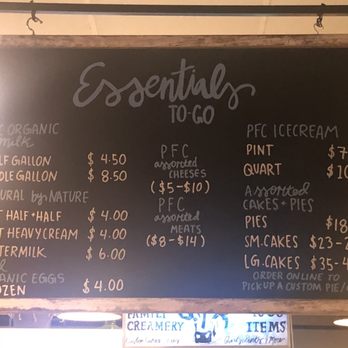 Essentials
TO-GO
C ORGANIC
milk
LF GALLON $4.50
OLE GALLON $8.50
URAL by NATURE
T HALF+HALF $4.00
T HEAVY CREAM $4.00
TERMILK $6.00
ANIC EGGS
OZEN $4.00
PFC
assorted
CHEESES
($5-$10)
PFC
assorted
MEATS
($8-$14)
PFC ICECREAM
PINT $7
QUART $10
Assorted
CAKES + PIES
PIES $18
SM. CAKES $23-2
LG. CAKES $35-4
ORDER ONLINE TO
PICKUP A CUSTOM PIE/
FAMILY
CREAMERY
ITEMS